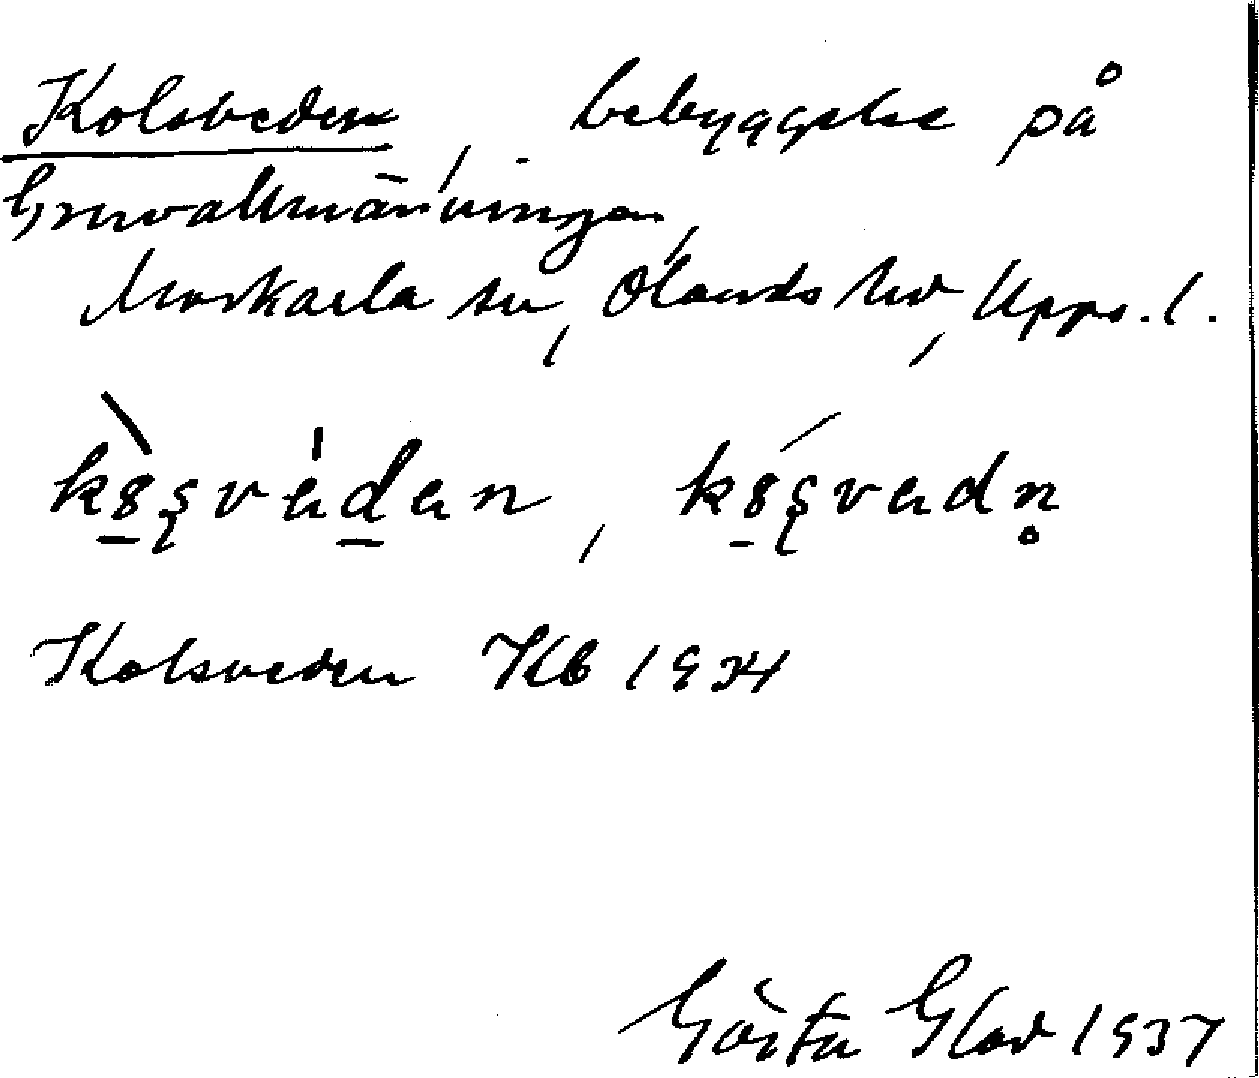 Kolsveden, bebyggelse på
Gruvallmänningen,
Morkarla sn, Olands hd, Upps. l.
Kolsveden Kb 1934
Gösta Glad 1937